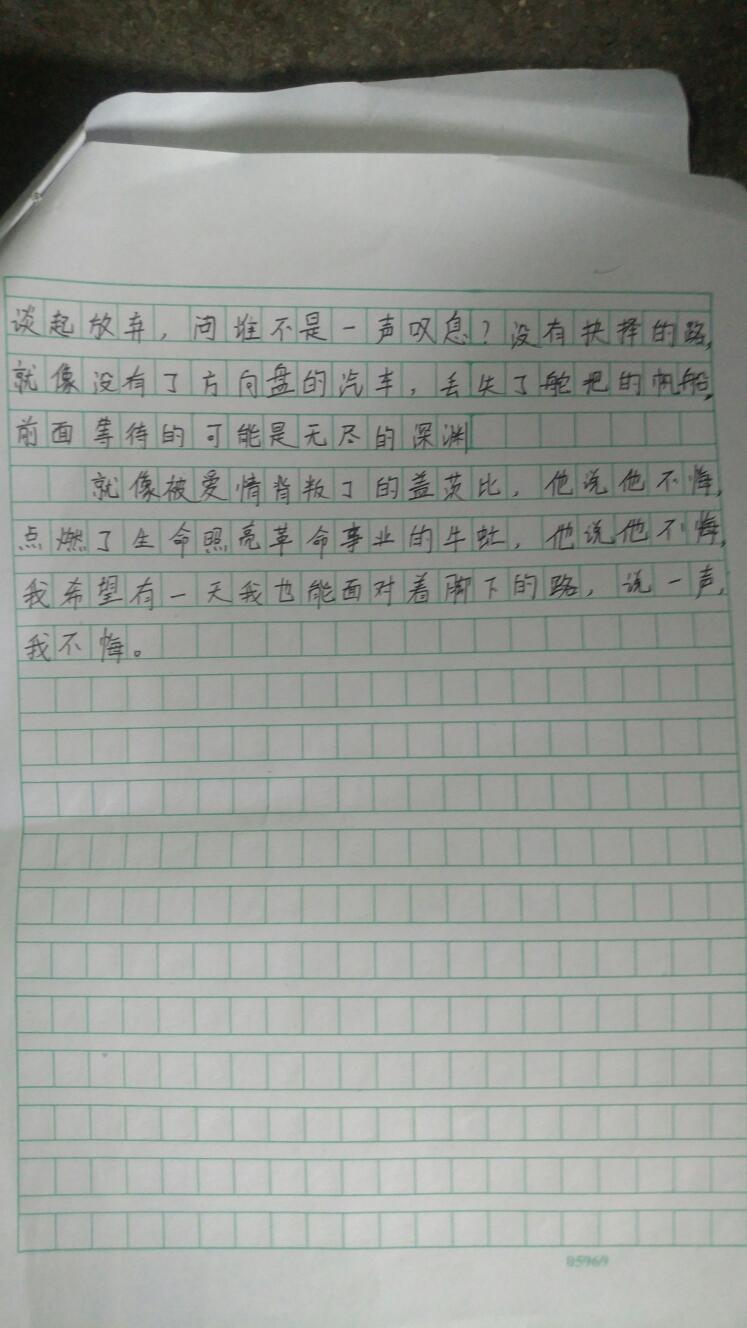 谈起放弃，问谁不是一声叹息？没有抉择的路，
就像没有了方向盘的汽车，丢失了舵把的帆船，
前面等待的可能是无尽的深渊
就像被爱情背叛了的盖茨比，他说他不悔，
点燃了生命照亮革命事业的牛虻，他说他不悔，
我希望有一天我也能面对着脚下的路，说一声，
我不悔。
05969